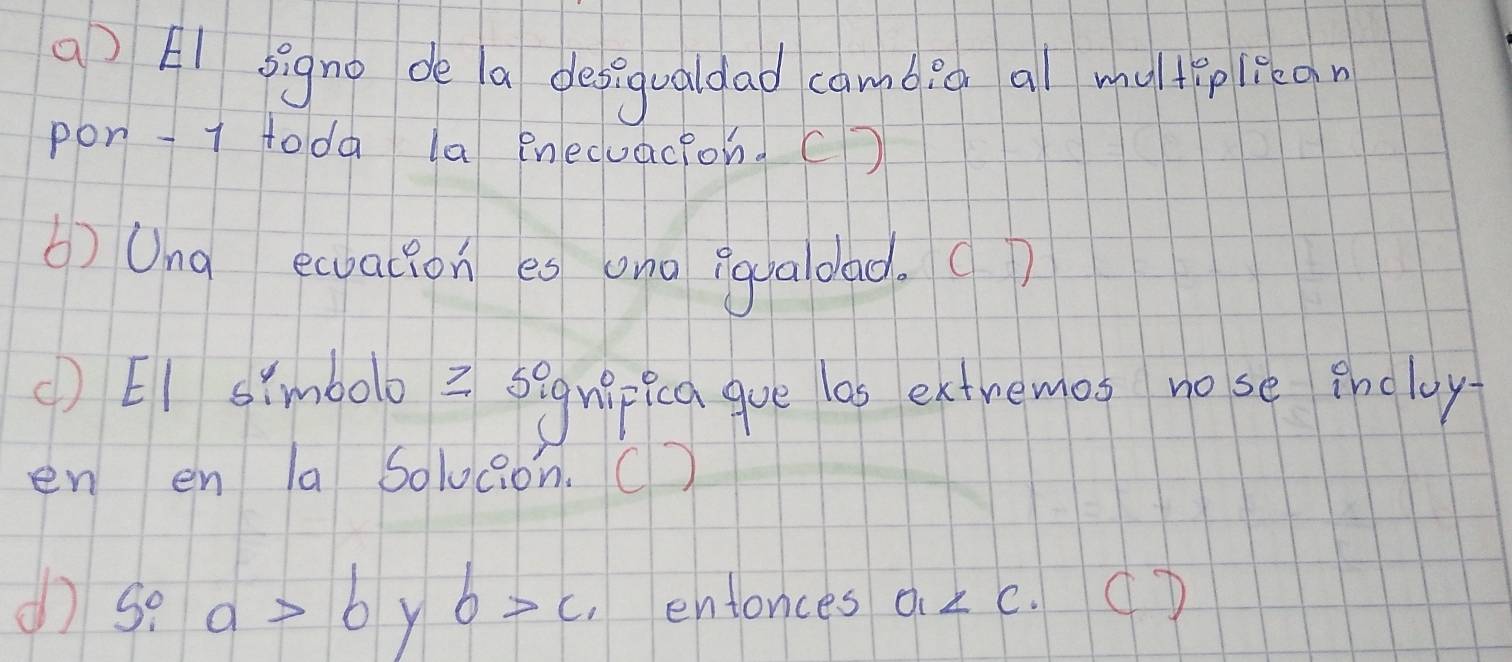 a) El signo de la desigualdad cambia al multiplican
pon - 1 toda la inecuación. ( )
b) Una ecuación es una igualdad. ( )
c) El símbolo ≥ significa que los extremos no se incluy-
en en la Solución. ( )
d) Si a > b y b > c, entonces a < c. ( )